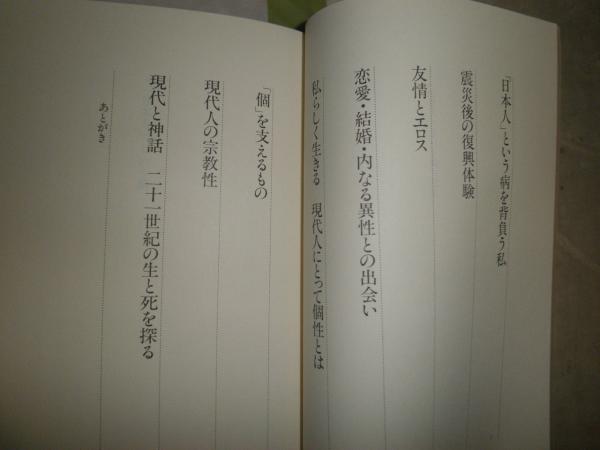 「日本人」という病を背負う私
震災後の復興体験
友情とエロス
恋愛・結婚・内なる異性との出会い
私らしく生きる　現代人にとって個性とは
「個」を支えるもの
現代人の宗教性
現代と神話　二十一世紀の生と死を探る
あとがき